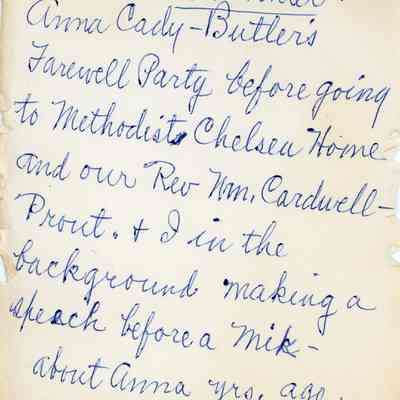 Anna Cady-Butler's
Farewell Party before going
to Methodist Chelsea Home
and our Rev Wm. Cardwell-
Prout. & I in the
background making a
speach before a Mik-
about Anna yrs. ago.